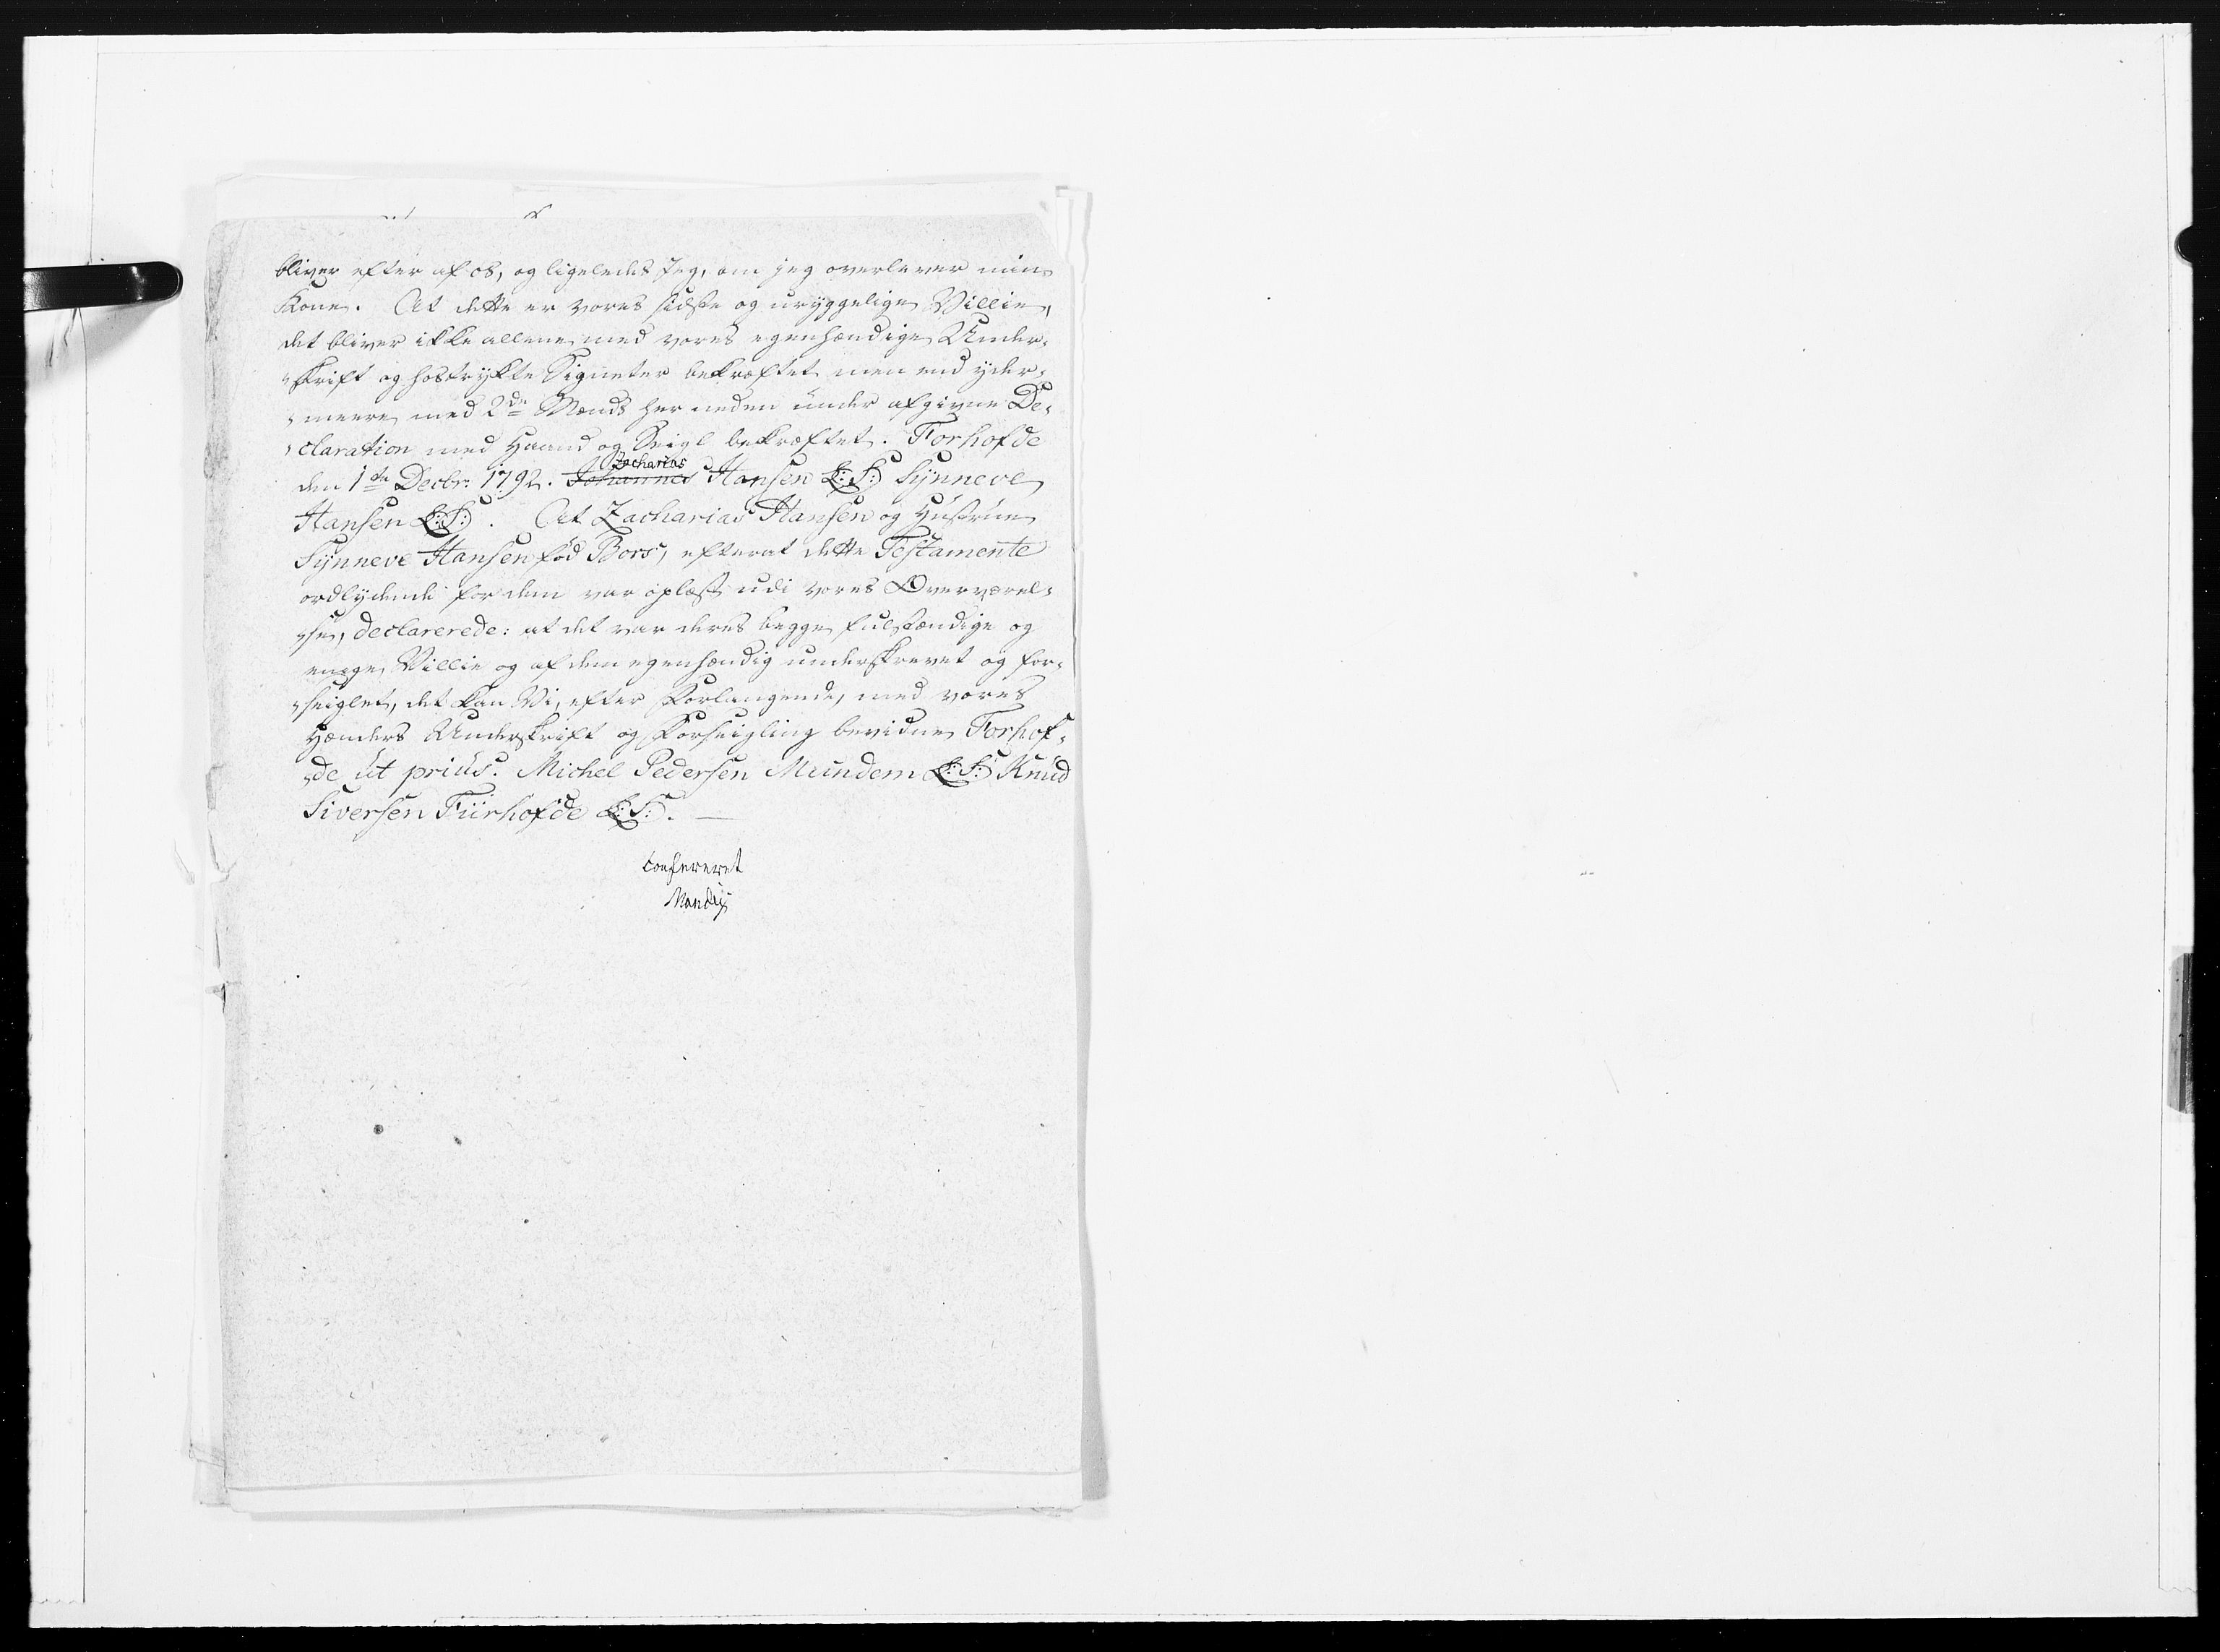 bliver efter af os, og ligeledes Jeg, om jeg overlever min
Kone. At dette er vores sidste og uryggelige Villie,
det bliver ikke allene med vores egenhændige Under-
skrift og hostrykte Signeter bekræftet men end yder-
meere med 2de Mænds her neden under afgivne De-
claration med Haand og Seigl bekræftet. Forhofde
den 1ste Decbr: 1792. Johannes Zacharias Hansen L:S: Synneve
Hansen L:S:. At Zacharias Hansen og Hustrue
Synneve Hansen fød Bors, efterat dette Testamente
ordlydende for dem var oplæst udi vores Overværel-
se, declarerede: at det var deres begges fulstændige og
enige Villie og af dem egenhændig underskrevet og for-
seiglet, det kan Vi, efter Forlangende, med vores
Hænders Underskrift og Forseigling bevidne Forhof-
de ut prius. Michel Pedersen Mundem L:S: Knud
Siversen Fürhofde L:S:. —
Confereret